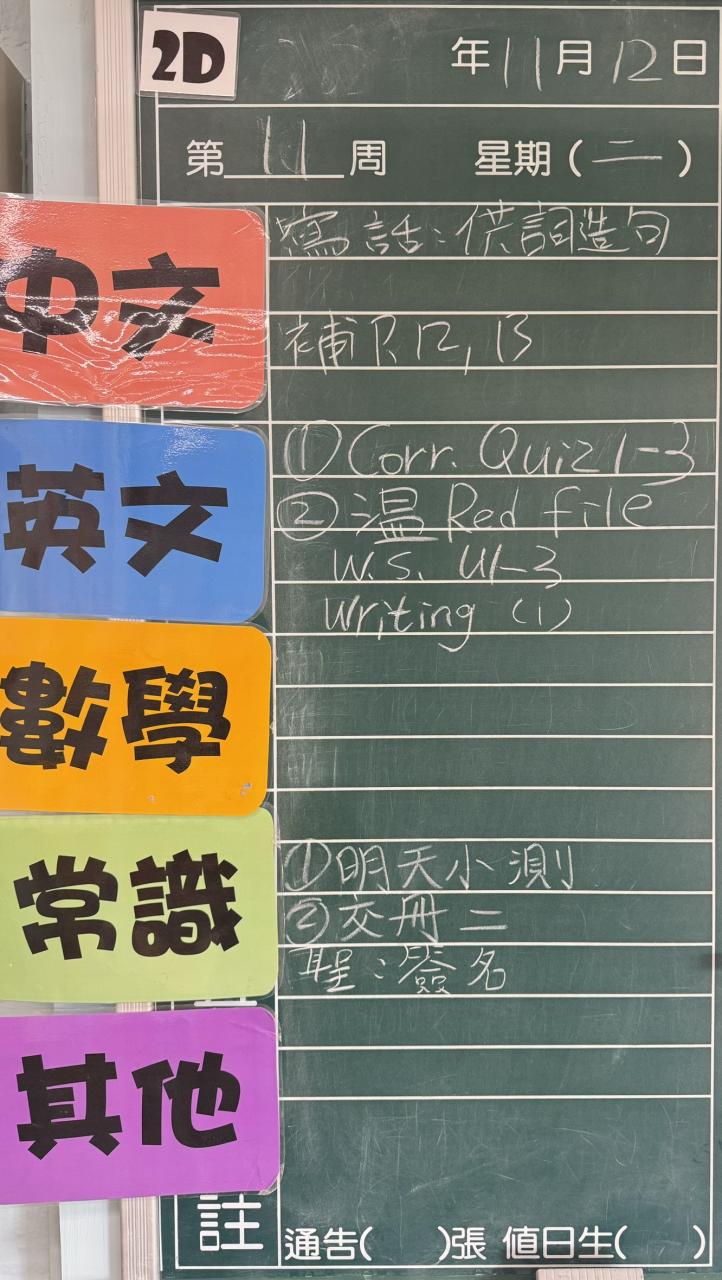 2D
年11月12日
第11周 星期(二)
中文
寫話:供詞造句
補P.12, 13
英文
①Corr. Quiz 1-3
②温 Red file
W.S. U1-3
Writing (1)
數學
常識
①明天小測
②交冊二
聖:簽名
其他
註
通告( )張 值日生( )